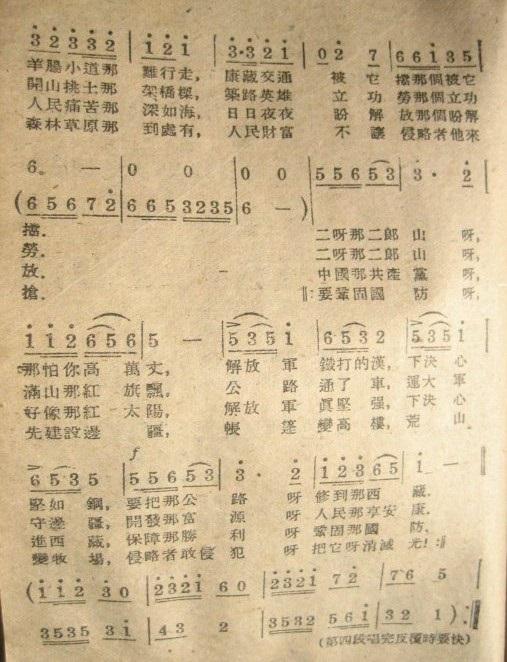 3 2 3 3 2 | 1 2 1 | 3·3 2 1 | 0 2 7 | 6 6 1 3 5 |
羊腸小道那 難行走， 康藏交通 被它 擋那個被它
開山挑土那 架橋樑， 築路英雄 立功 勞那個立功
人民痛苦那 深如海， 日日夜夜 盼解 放那個盼解
森林草原那 到處有， 人民財富 不讓 侵略者他來
6。 — | 0 0 | 0 0 |
(6 5 6 7 2 | 6 6 5 3 2 3 5 | 6 —) | 5 5 6 5 (5 3) | 3 · 2 |
擋． 二呀那二郎 山 呀，
勞． 二呀那二郎 山 呀，
放． 中國那共產 黨 呀，
搶． ‖: 要鞏固國 防 呀，
1 1 2 6 5 6 | 5 — | 5 3 5 1 | 6 5 3 2 | 5 3 5 1 |
那怕你高 萬丈， 解放 軍 鐵打的漢， 下決 心
滿山那紅 旗飄， 公 路 通了 車， 運大 軍
好像那紅 太陽， 解放 軍 眞堅 强， 下決 心
先建設邊 疆， 帳 篷 變高 樓， 荒 山
f
6 5 3 5 | 5 5 6 5 5 3 | 3 · 2 | 1 2 3 6 5 | 1 — |
堅如 鋼， 要把那公 路 呀 修到那西 藏．
守邊 疆， 開發那富 源 呀 人民那享安 康．
進西 藏， 保障那勝 利 呀 鞏固那國 防．
變牧 場， 侵略者敢侵 犯 呀 把它呀消滅 光！:‖
(1 1 2 3 0 | 2 3 2 1 6 0 | 2 3 2 1 7 2 | 7 6 5 |
3 5 3 5 3 1 | 4·3 2 | 3 5 3 2 5 6 1 | 3 2 1):‖
(第四段唱完反復時要快)